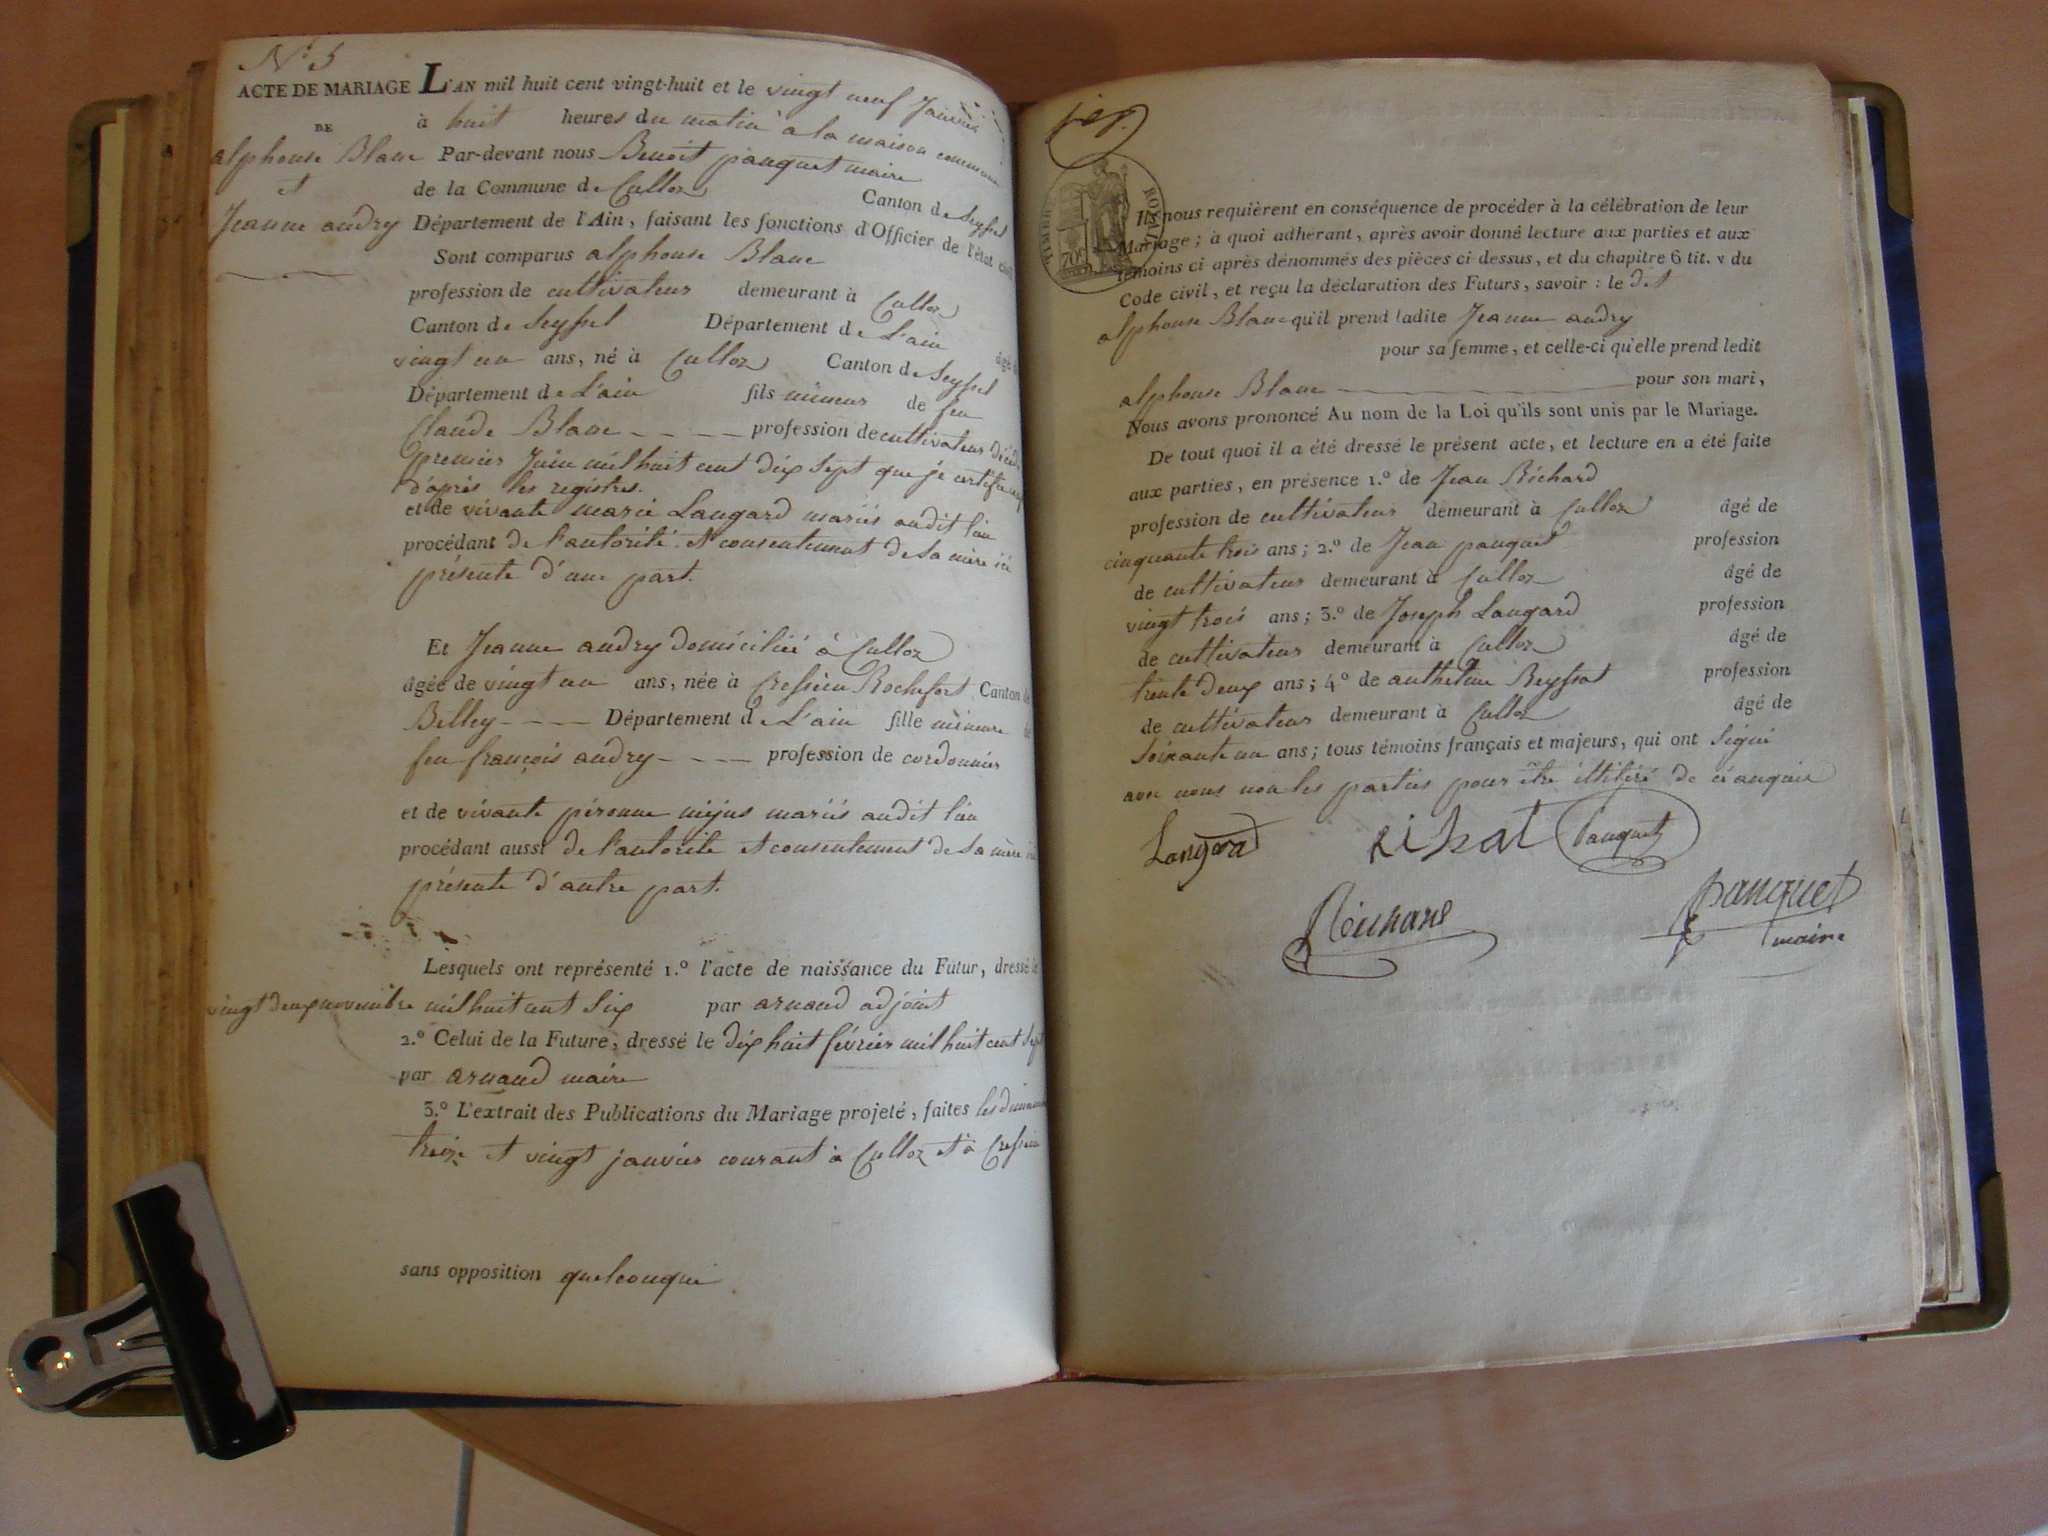 N.º 5
ACTE DE MARIAGE
DE
alphonse Blanc
et
Jeanne audry
L'AN mil huit cent vingt-huit et le vingt neuf Janvier
à huit heures du matin a la maison commune
Par-devant nous Benoit panquet maire
de la Commune de Culloz Canton de Seyssel
Département de l'Ain, faisant les fonctions d'Officier de l'état civil
Sont comparus alphonse Blanc
profession de cultivateur demeurant à Culloz
Canton de Seyssel Département de L'ain âgé
vingt un ans, né à Culloz Canton de Seyssel
Département de L'ain fils mineur de feu
Claude Blanc profession de cultivateur décédé
premier Juin mil huit cent dix sept que je certifie
d'après les registres.
et de vivante marie Langard mariés audit lieu
procédant de l'autorité et consentement de sa mère ici
présente d'une part.
Et Jeanne audry domiciliée à Culloz
âgée de vingt un ans, née à Cressieu Rochefort Canton de
Belley Département de L'ain fille mineure de
feu françois audry profession de cordonnier
et de vivante péronne mijus mariés audit lieu
procédant aussi de l'autorité et consentement de sa mère ici
présente d'autre part.
Lesquels ont représenté 1.º l'acte de naissance du Futur, dressé le
vingt deux novembre mil huit cent six par arnaud adjoint
2.º Celui de la Future, dressé le dix huit février mil huit cent sept
par arnaud maire
3.º L'extrait des Publications du Mariage projeté, faites les dimanches
treize et vingt janvier courant à Culloz et à Cressieu
sans opposition quelconque
TIMBRE ROYAL
70c
Ils nous requièrent en conséquence de procéder à la célébration de leur
Mariage ; à quoi adhérant, après avoir donné lecture aux parties et aux
témoins ci après dénommés des pièces ci-dessus, et du chapitre 6 tit. v du
Code civil, et reçu la déclaration des Futurs, savoir : le dit
alphonse Blanc qu'il prend ladite Jeanne audry
pour sa femme, et celle-ci qu'elle prend ledit
alphonse Blanc pour son mari,
Nous avons prononcé Au nom de la Loi qu'ils sont unis par le Mariage.
De tout quoi il a été dressé le présent acte, et lecture en a été faite
aux parties, en présence 1.º de Jean Richard
profession de cultivateur demeurant à Culloz âgé de
cinquante trois ans ; 2.º de Jean panquet profession
de cultivateur demeurant à Culloz âgé de
vingt trois ans ; 3.º de Joseph Langard profession
de cultivateur demeurant à Culloz âgé de
trente deux ans ; 4º de anthelme Reyssat profession
de cultivateur demeurant à Culloz âgé de
soixante un ans ; tous témoins français et majeurs, qui ont signé
avec nous non les parties pour être illitéré de ce enquis
Langard Panquet
Richard panquet
maire